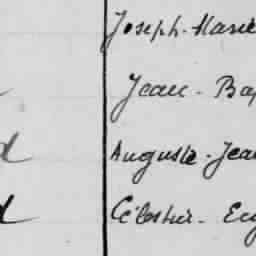 Joseph-Marie
Jean-Bap
d Auguste-Jea
d Célestin-Eug